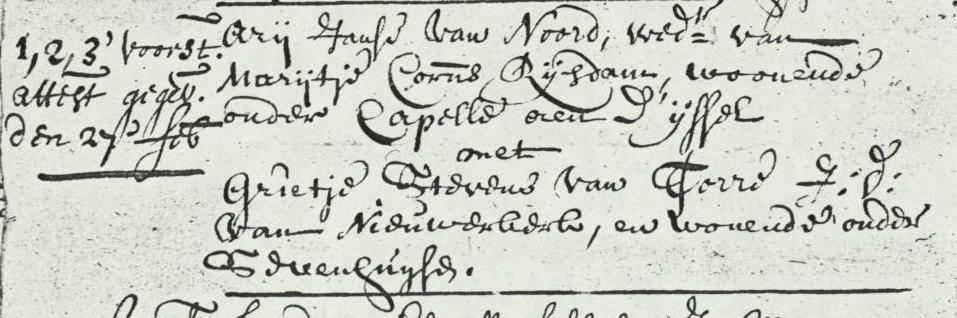 1, 2, 3 voorst.
attest gegev.
den 27 feb
Arij Janse van Noord, wedr van
Marijtje Corns Rijsdam, woonende
onder Capelle aen d'ijssel
met
Grietje Stevens van Torre J: D:
van Nieuwerkerk, en wonende onder
Sevenhuijse.